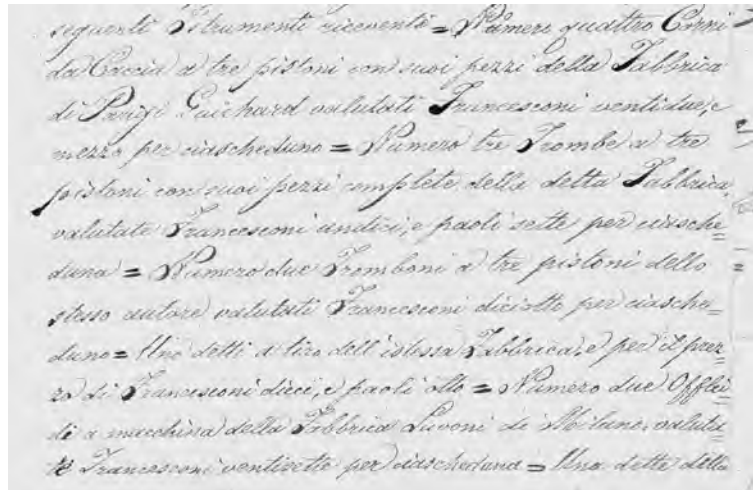 seguenti Istrumenti riceventi = Numero quattro Corni
da Caccia a tre pistoni con suoi pezzi della Fabbrica
di Parigi Guichard valutati Francesconi ventidue, e
mezzo per ciascheduno = Numero tre Trombe a tre
pistoni con suoi pezzi complete della detta Fabbrica,
valutate Francesconi undici, e paoli sette per ciasche=
duna = Numero due Tromboni a tre pistoni dello
stesso autore valutati Francesconi diciotto per ciasche=
duno = Uno detti a tiro dell'istessa Fabbrica, e per il prez=
zo di Francesconi dieci, e paoli otto = Numero due Offlei=
di a macchina della Fabbrica Luvoni di Milano, valuta=
te Francesconi ventisette per ciascheduna = Una dette della